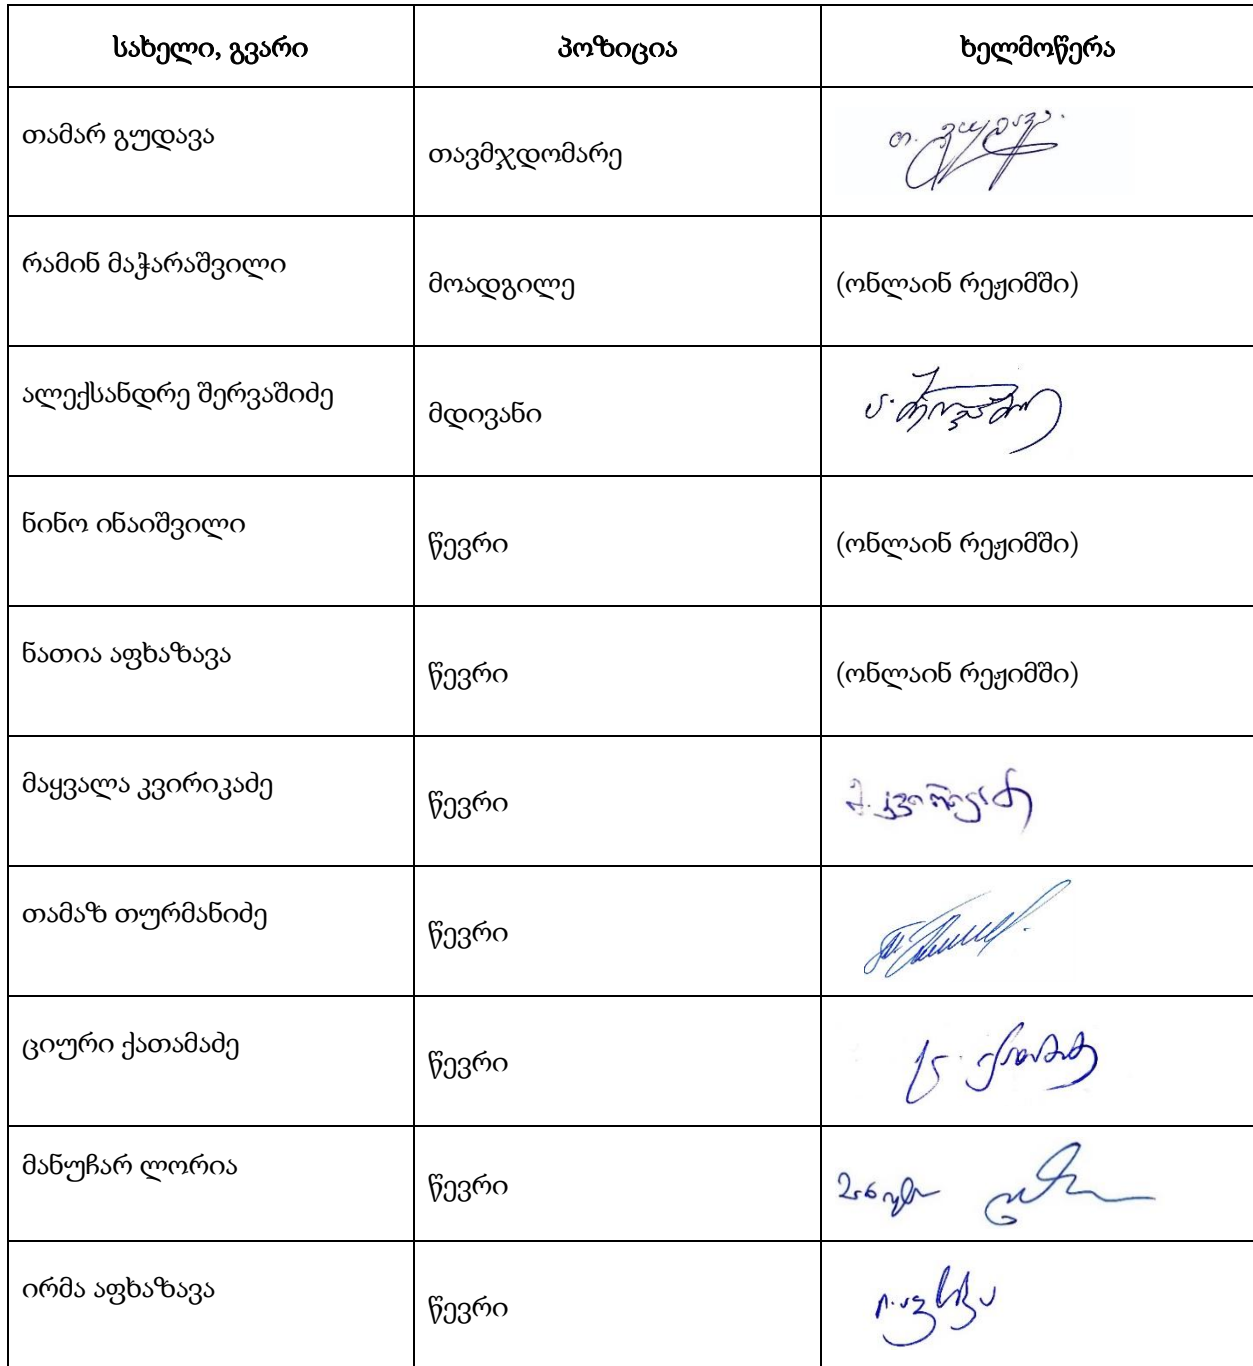 სახელი, გვარი პოზიცია ხელმოწერა
თამარ გუდავა თავმჯდომარე თ. გუდავა.
რამინ მაჭარაშვილი მოადგილე (ონლაინ რეჟიმში)
ალექსანდრე შერვაშიძე მდივანი
ნინო ინაიშვილი წევრი (ონლაინ რეჟიმში)
ნათია აფხაზავა წევრი (ონლაინ რეჟიმში)
მაყვალა კვირიკაძე წევრი მ. კვირიკაძე
თამაზ თურმანიძე წევრი
ციური ქათამაძე წევრი
მანუჩარ ლორია წევრი
ირმა აფხაზავა წევრი